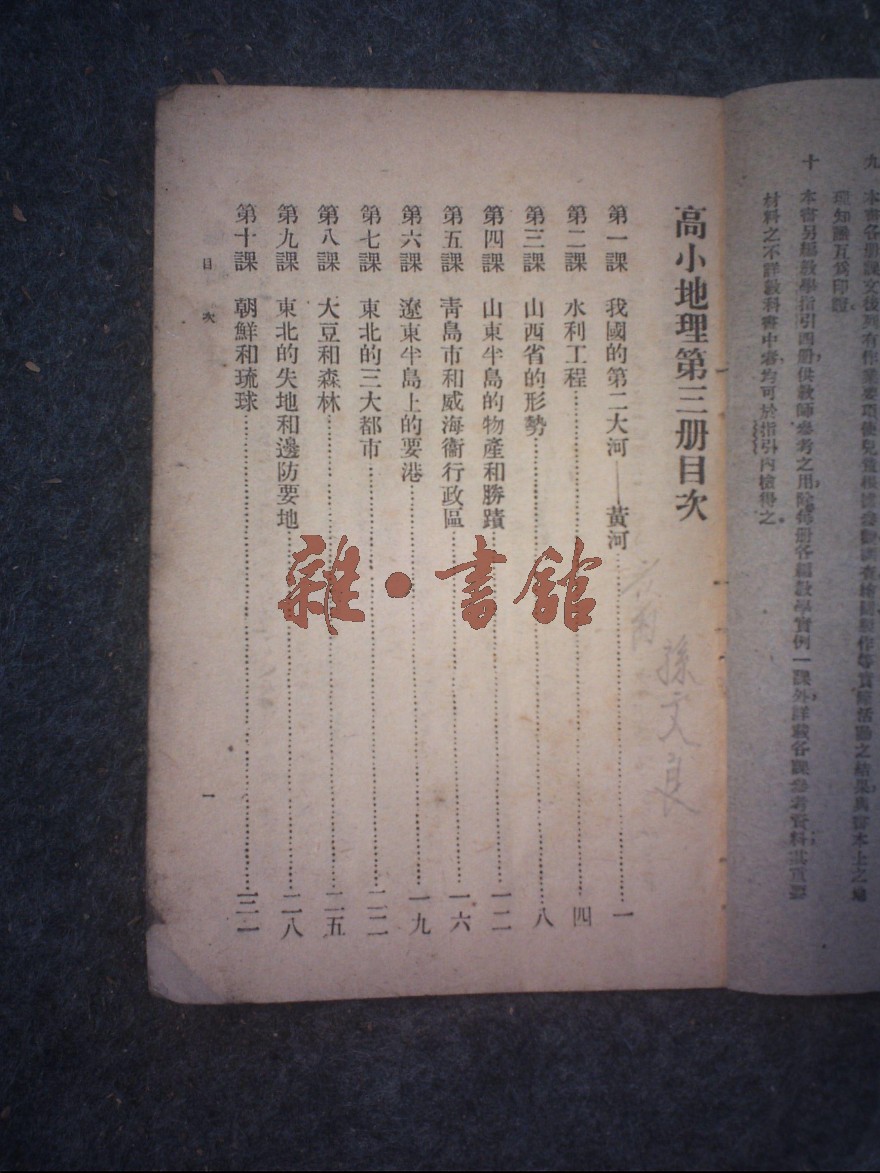 九　本書各冊課文後列有作業要項使兒童根據參觀調查繪圖製作等實際活動之結果與書本上之地
理知識互爲印證
十　本書另編教學指引四册，供敎師參考之用，除每册各編敎學實例一課外，詳載各課參考資料，其重要
材料之不詳敎科書中者，均可於指引內檢得之
高小地理第三册目次
第一課　我國的第二大河——黃河……一
第二課　水利工程……四
第三課　山西省的形勢……八
第四課　山東半島的物產和勝蹟……一二
第五課　靑島市和威海衞行政區……一六
第六課　遼東半島上的要港……一九
第七課　東北的三大都市……二二
第八課　大豆和森林……二五
第九課　東北的失地和邊防要地……二八
第十課　朝鮮和琉球……三一
目次　一
孫文良
雜·書館